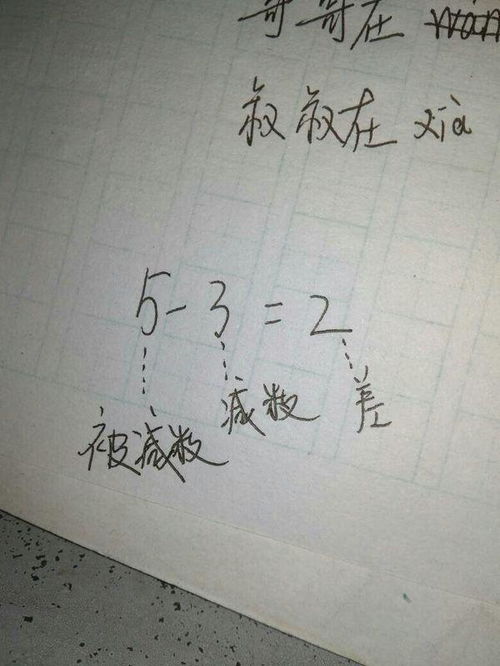 哥哥在
叔叔在 xià
5-3=2
减数 差
被减数